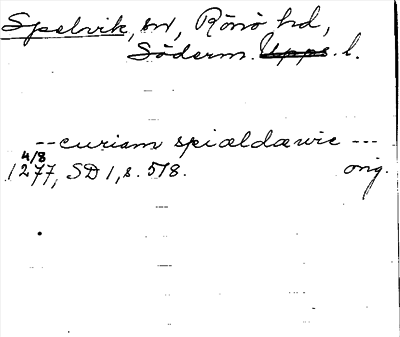 Spelvik, sn, Rönö hd,
Söderm. Upps. l.
--curiam spiældæwic ---
4/8
1277, SD 1, s. 518. orig.